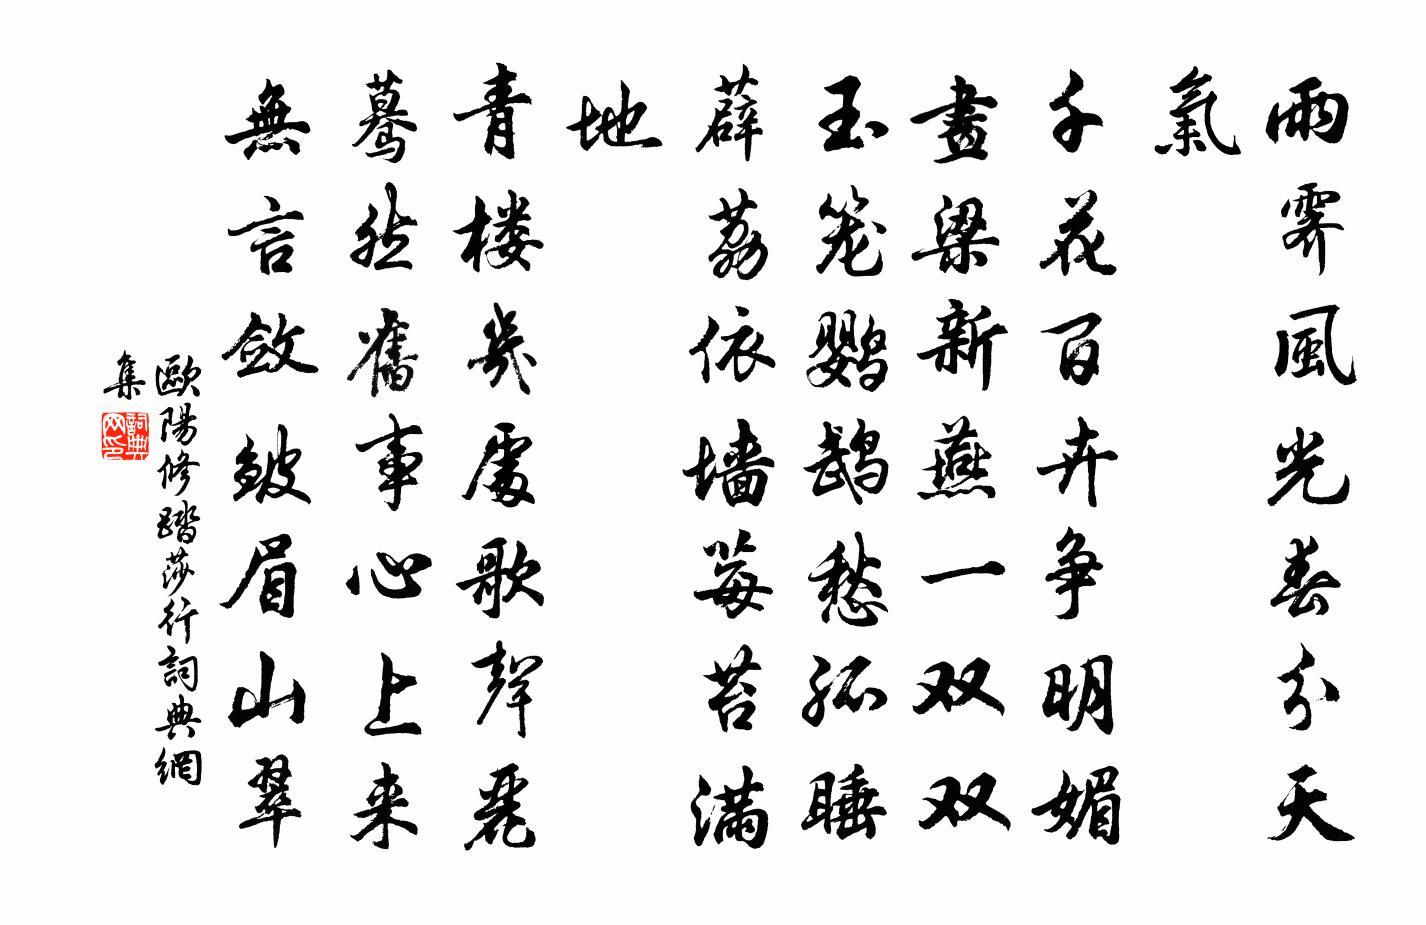 雨霁風光春分天
氣
千花百卉争明媚
畫梁新燕一双双
玉笼鹦鹉愁孤睡
薜荔依墙莓苔满
地
青楼幾處歌聲麗
驀然舊事心上来
無言斂皺眉山翠
歐陽修踏莎行詞典網
集
詞典
网印